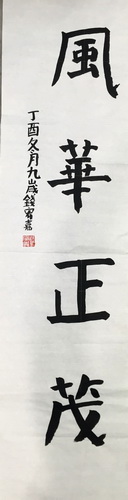 風華正茂
丁酉冬月九歲錢宥嘉